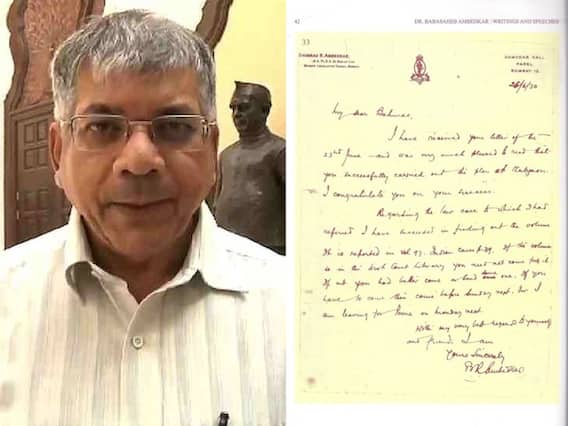 42
DR. BABASAHEB AMBEDKAR : WRITINGS AND SPEECHES
33
BHIMRAO R. AMBEDKAR,
DAMODAR HALL
PAREL
BOMBAY 12.
26/6/30
My dear
I have received your letter of the
23rd June and was very much pleased to read that
you successfully carried out the plan at
I congratulate you on your success.
Regarding the law case to which I had
referred I have succeeded in finding out the volume
It is reported in vol 93. Indian Cases. If the volume
is in the High Court Library you need not come for it.
If not you had better come or send one. If you
have to come then come before Sunday next. for I
am leaving for Poona on Monday next.
With my very best regards to yourself
and friends I am
Yours Sincerely
BR Ambedkar